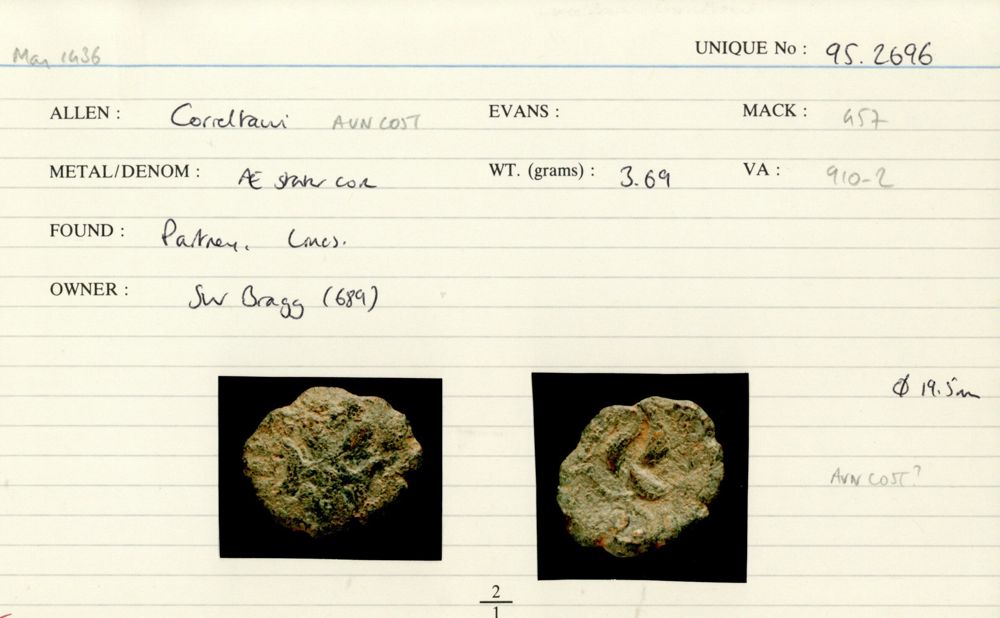 May 1936
UNIQUE No : 95.2696
ALLEN : Corieltauvi AVN COST EVANS : MACK : 457
METAL/DENOM : Æ stater core WT. (grams) : 3.69 VA : 910-2
FOUND : Partney, Lincs.
OWNER : Bragg (689)
Ø 19.5m
AVN COST?
2
1